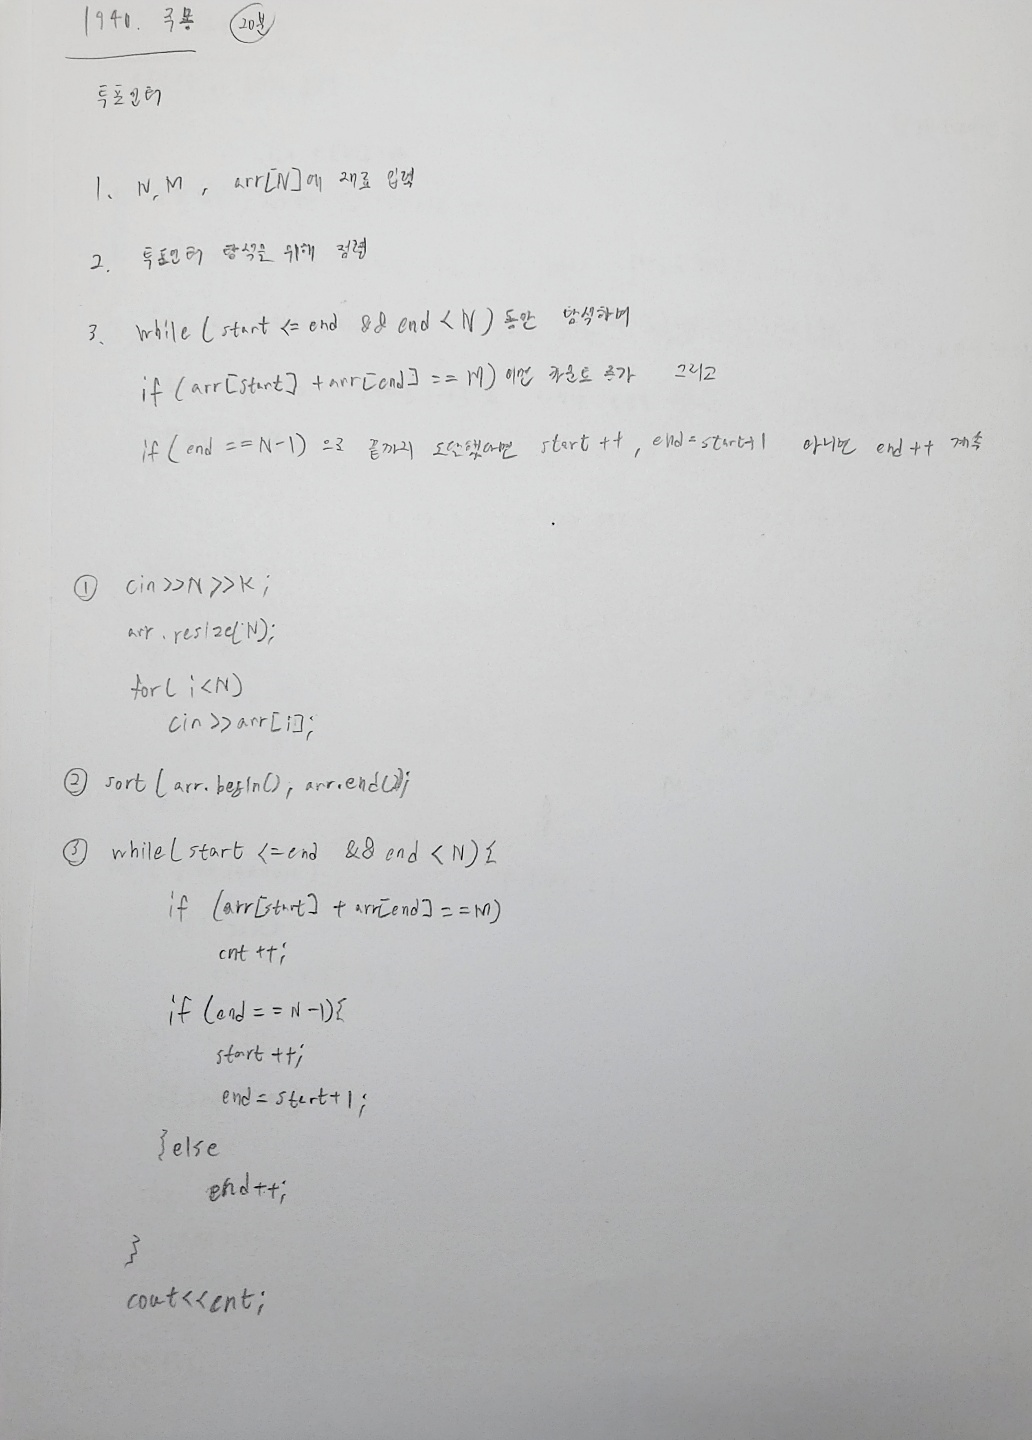 1940. 주몽 20분
투포인터
1. N, M, arr[N]에 재료 입력
2. 투포인터 탐색을 위해 정렬
3. while (start <= end && end < N) 동안 탐색하며
if (arr[start] + arr[end] == M) 이면 카운트 추가 그리고
if (end == N-1) 으로 끝까지 도달했다면 start ++, end = start+1 아니면 end ++ 계속
① cin >> N >> K;
arr.resize(N);
for( i<N)
cin >> arr[i];
② sort (arr.begin(), arr.end());
③ while (start <= end && end < N) {
if (arr[start] + arr[end] == M)
cnt ++;
if (end == N-1){
start ++;
end = start+1;
} else
end++;
}
cout<<cnt;